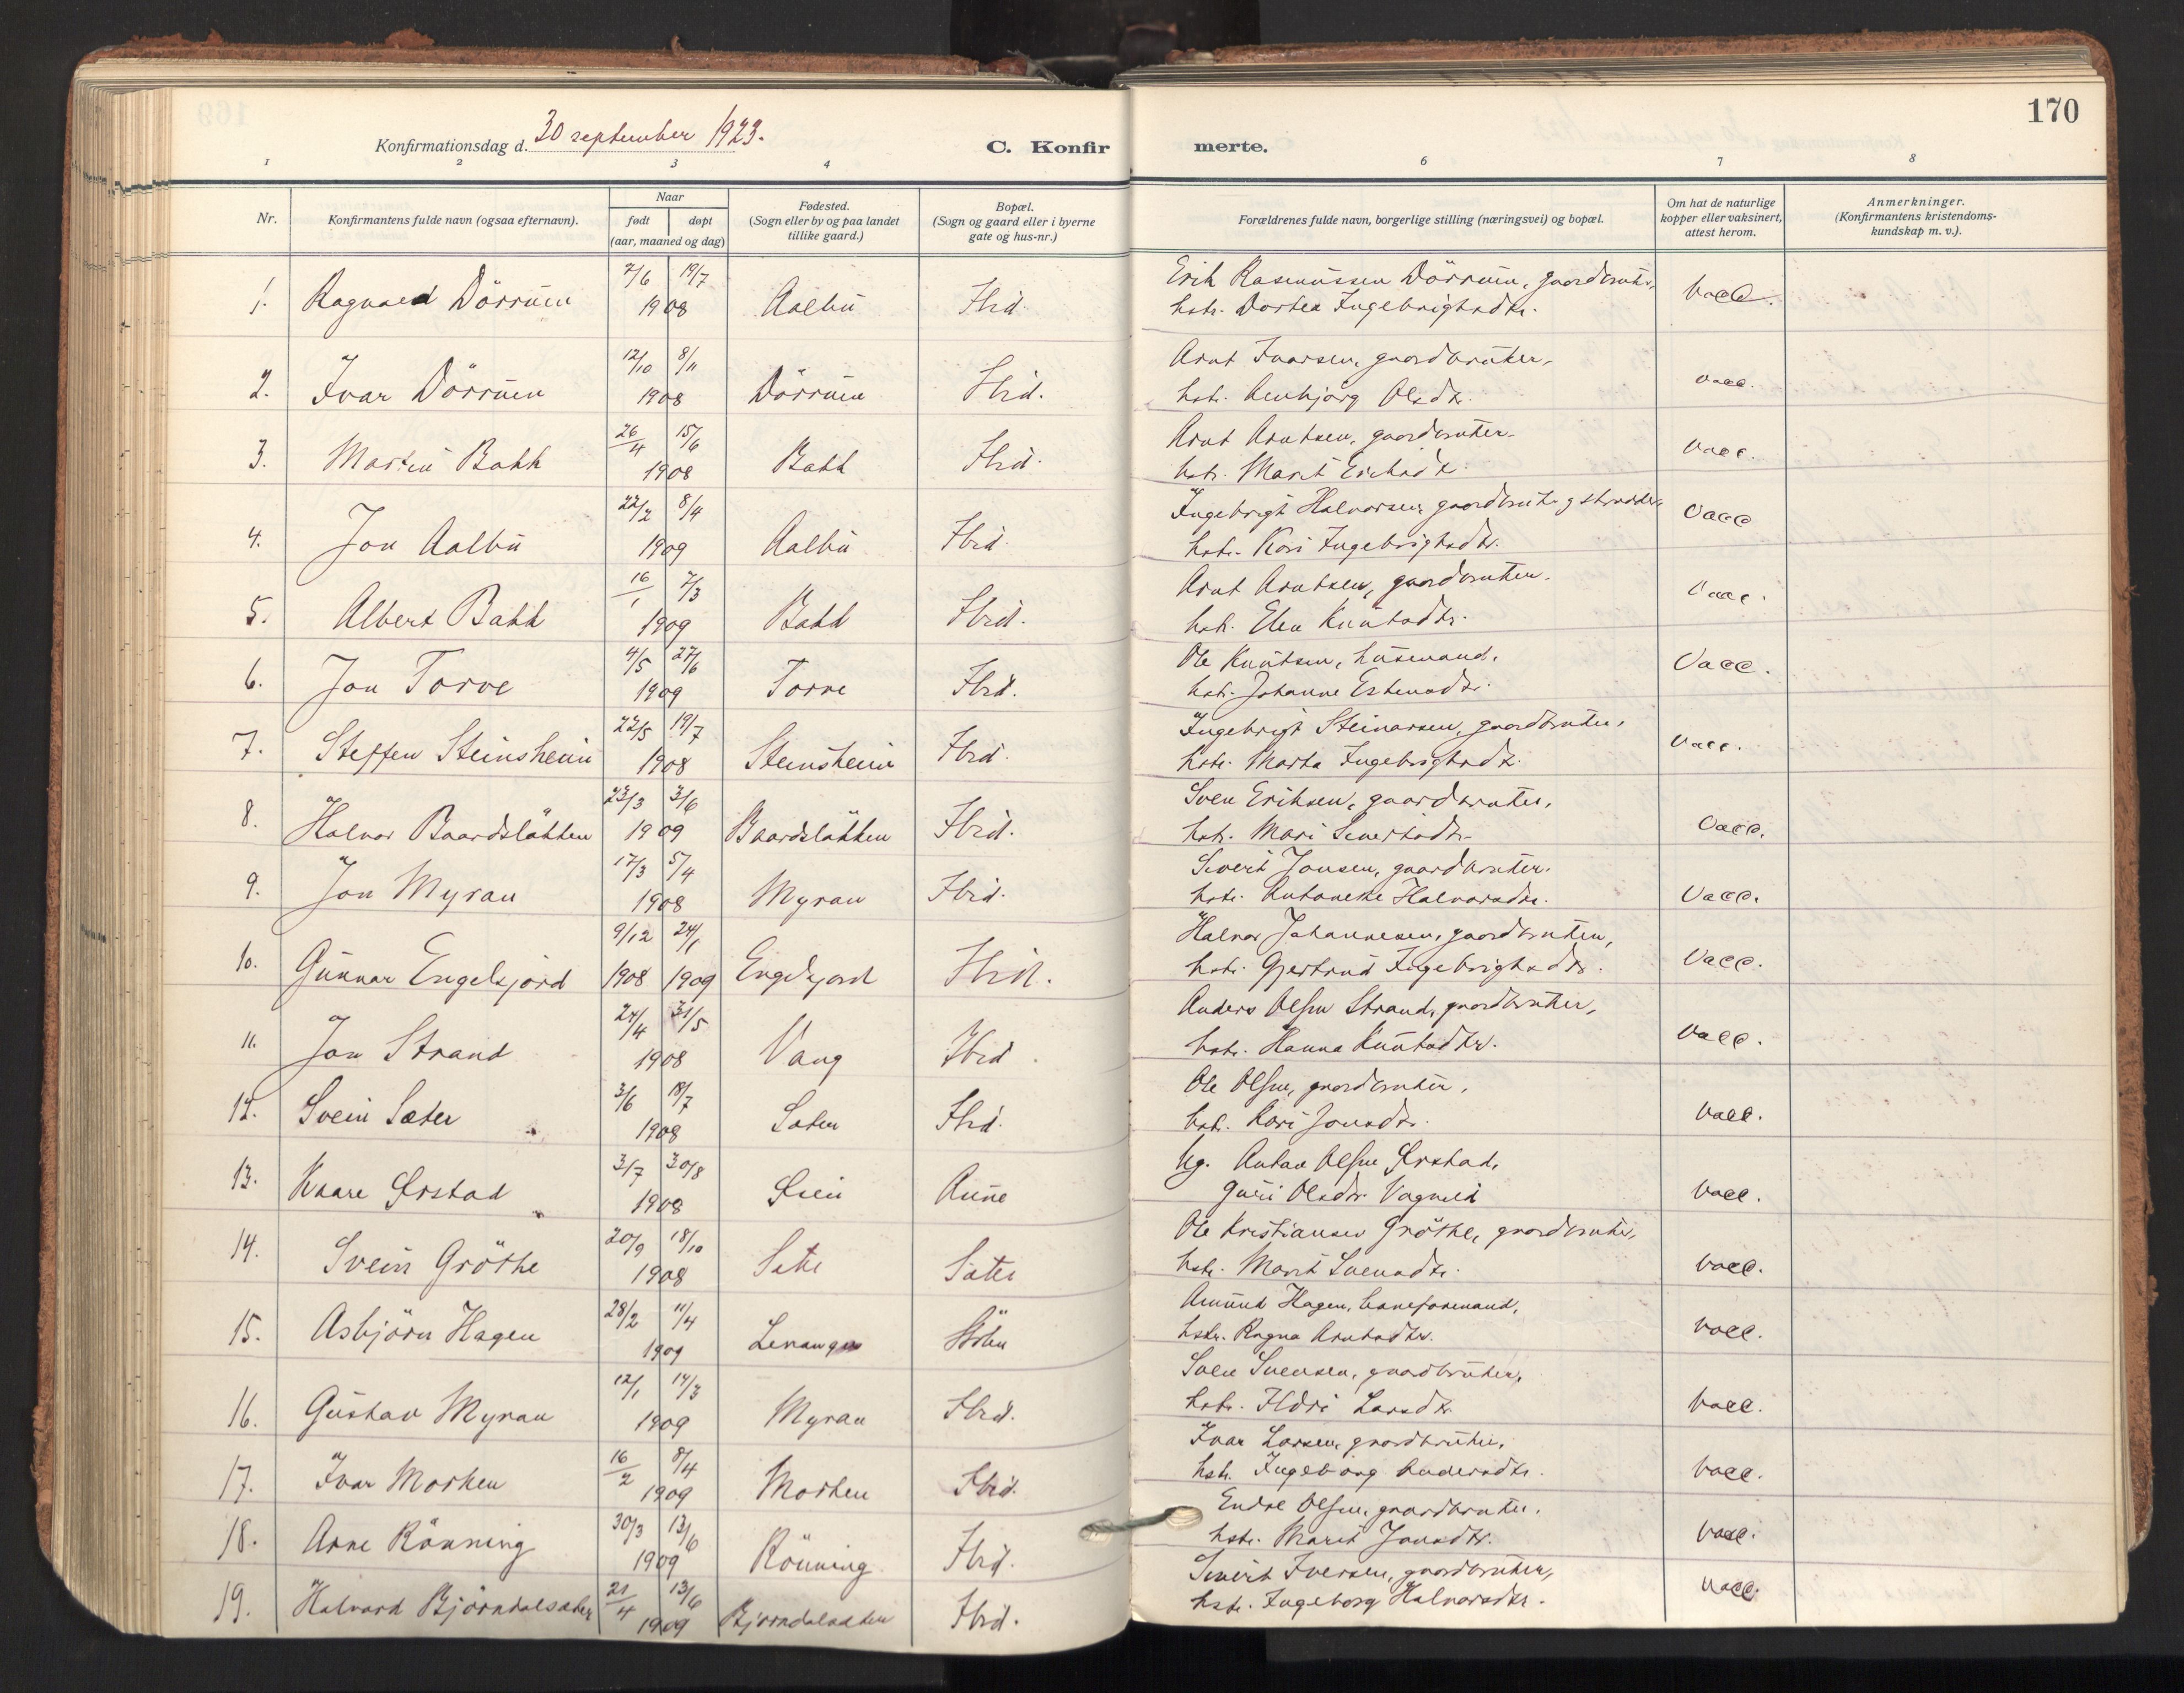 170
Konfirmationsdag d. 30 september 1923.
C. Konfir
merte.
1 2 3 4 6 7 8
Nr.
Konfirmantens fulde navn (ogsaa efternavn).
Naar
født døpt
(aar, maaned og dag)
Fødested.
(Sogn eller by og paa landet
tillike gaard.)
Bopæl.
(Sogn og gaard eller i byerne
gate og hus-nr.)
Forældrenes fulde navn, borgerlige stilling (næringsvei) og bopæl.
Om hat de naturlige
kopper eller vaksinert,
attest herom.
Anmerkninger.
(Konfirmantens kristendoms-
kundskap m. v.).
7/6 19/7 Erik Rasmussen Dörrum, gaardbruker,
1. Ragnvald Dörrum 1908 Aalbu Ibid. hstr. Dortea Ingebrigtsdtr. Vacc.
12/10 8/11 Arnt Ivarsen, gaardbruker,
2. Ivar Dörrum 1908 Dörrum Ibid. hstr. Olsdtr. vacc.
26/4 15/6 Arnt Arntsen, gaardbruker.
3. Martin Bakk 1908 Bakk Ibid. hstr. Marit Eriksdtr. Vacc.
22/2 8/4 Ingebrigt Halvorsen, gaardbruk.
4. Jon Aalbu 1909 Aalbu Ibid. hstr. Kari Ingebrigtsdtr. Vacc
16/1 7/3 Arnt Arntsen, gaardbruker.
5. Albert Bakk 1909 Bakk Ibid. hstr. Elen Knutsdtr. Vacc.
4/5 27/6 Ole Knutsen, husmand,
6. Jon Torve 1909 Torve Ibid. hstr. Johanne Estensdtr. Vacc.
22/5 19/7 Ingebrigt Steinarsen, gaardbruker,
7. Steffen Steinsheim 1908 Steinsheim Ibid. hstr. Marta Ingebrigtsdtr. Vacc.
23/3 3/6 Sven Eriksen, gaardbruker,
8. Halvor Baardsløkken 1909 Baardsløkken Ibid. hstr. Mari Sivertsdtr. Vacc.
17/3 5/4 Sivert Jonsen, gaardbruker.
9. Jon Myran 1908 Myran Ibid. hstr. Halvorsdtr. Vacc.
9/12 24/1 Halvor Johannesen, gaardbruker,
10. Gunnar Engelsjord 1908 1909 Engelsjord Ibid. hstr. Gjertrud Ingebrigtsdtr. Vacc.
24/4 31/5 Anders Olsen Strand, gaardbruker,
11. Jon Strand 1908 Vang Ibid. hstr. Hanna Knutsdtr. Vacc.
3/6 18/7 Ole Olsen, gaardbruker,
12. Svein Sæter 1908 Sæter Ibid. hstr. Kari Jonsdtr. Vacc.
3/7 30/8 Ug. Anton Olsen Ørstad,
13. Kaare Ørstad 1908 Aune Guri Olsdtr. Vognild Vacc.
20/9 18/10 Ole Kristiansen Gröthe, gaardbruker,
14. Svein Gröthe 1908 Sæter Sæter hstr. Marit Svensdtr. Vacc.
28/2 11/4 Amund Hagen, baneformand,
15. Asbjörn Hagen 1909 hstr. Ragna Arntsdtr. Vacc.
12/1 14/3 Sven Svensen, gaardbruker,
16. Gustav Myran 1909 Myran Ibid. hstr. Ildri Larsdtr. Vacc.
16/2 8/4 Ivar Larsen, gaardbruker,
17. Ivar Morken 1909 Morken Ibid. hstr. Ingeborg Andersdtr. Vacc.
30/3 13/6 Endre Olsen, gaardbruker.
18. Arne Rönning 1909 Rönning Ibid. hstr. Marit Jonsdtr. Vacc.
21/4 13/6 Sivert Iversen, gaardbruker,
19. Halvard Bjørndalsæter 1909 Bjørndalsæter Ibid. hstr. Ingeborg Halvorsdtr. Vacc.